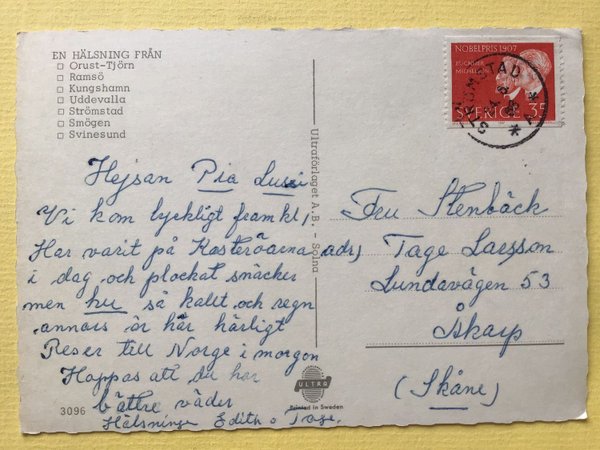 EN HÄLSNING FRÅN
Orust-Tjörn
Ramsö
Kungshamn
Uddevalla
Strömstad
Smögen
Svinesund
Hejsan Pia
Vi kom lyckligt fram kl,
Har varit på Kosteröarna
i dag och plockat snäcker
men hu så kallt och regn
annars är här härligt
Reser till Norge i morgon
Hoppas att du har
bättre väder
Hälsninge Edith o Tage.
3096
Ultraförlaget A.B. - Solna
ULTRA
Printed in Sweden
NOBELPRIS 1907
BUCHNER
MICHELSON
SVERIGE 35
STRÖMSTAD
Fru Stenbäck
adr, Tage Larsson
Lundavägen 53
Åkarp
(Skåne)